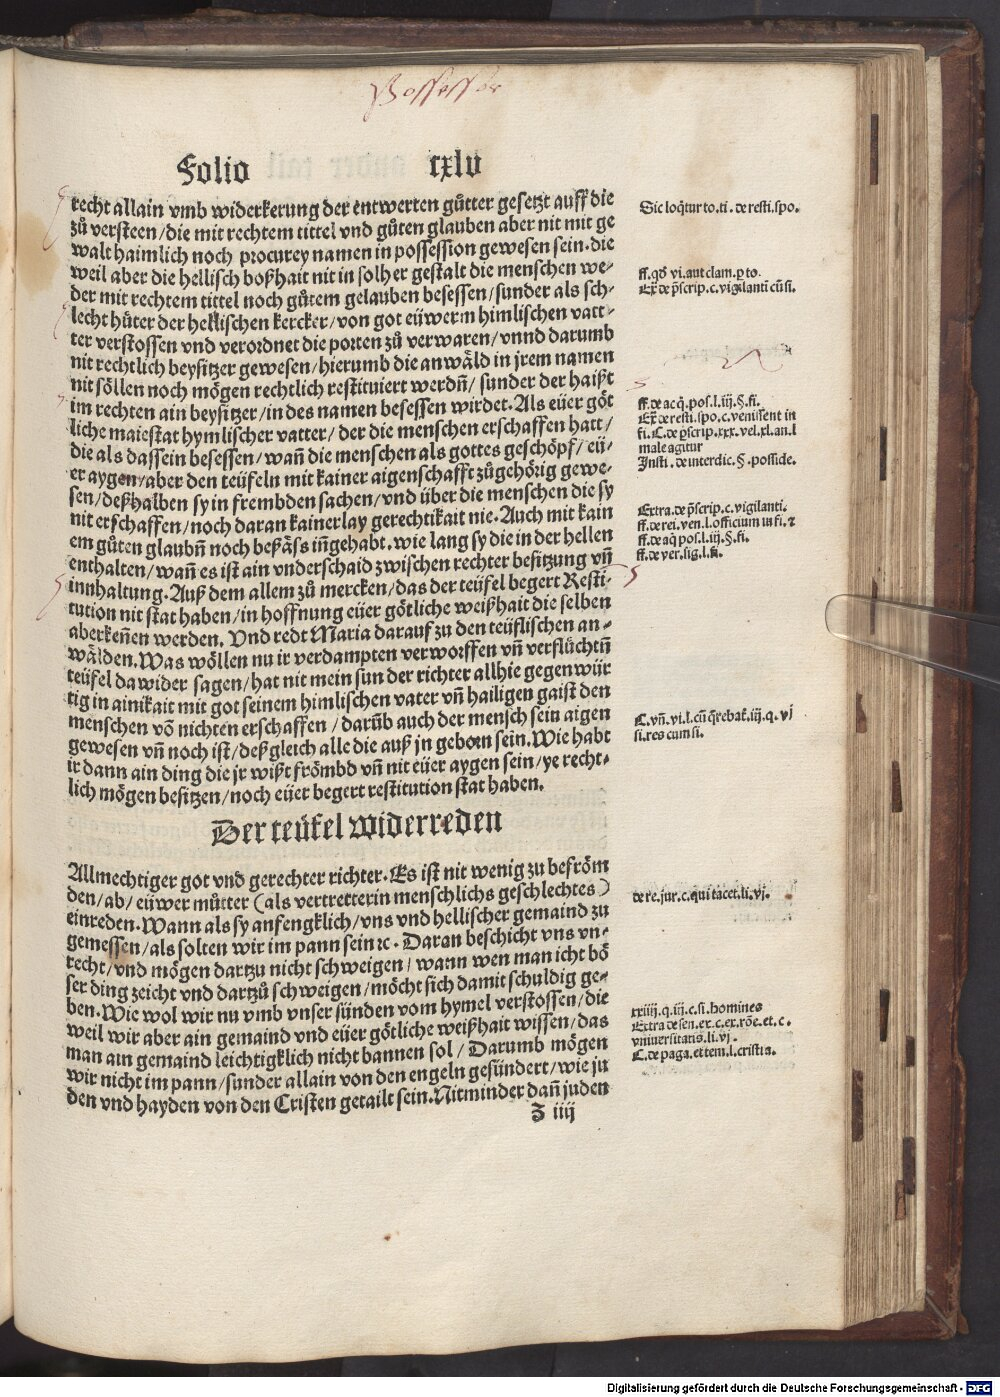 Possessor
Folio cxlv
recht allain vmb widerkerung der entwerten gůtter gesetzt auff die
zů versteen/die mit rechtem tittel vnd gůten glauben aber nit mit ge
walt haimlich noch procurey namen in possession gewesen sein. die
weil aber die hellisch boßhait nit in solher gestalt die menschen we⸗
der mit rechtem tittel noch gůtem gelauben besessen/sunder als sch⸗
lecht hůter der hellischen kercker/von got eüwerm himlischen vatt⸗
ter verstossen vnd verordnet die porten zů verwaren/vnnd darumb
nit rechtlich beysitzer gewesen/hierumb die anwäld in jrem namen
nit söllen noch mögen rechtlich restituiert werdn̄/sunder der haißt
im rechten ain beysitzer/in des namen besessen wirdet. Als eüer göt
liche maiestat hymlischer vatter/der die menschen erschaffen hatt/
die als dassein besessen/wañ die menschen als gottes geschöpf/eü⸗
er aygen/aber den teüfeln mit kainer aigenschafft zůgehörig gewe⸗
sen/deßhalben sy in frembden sachen/vnd über die menschen die sy
nit erschaffen/noch daran kainerlay gerechtikait nie. Auch mit kain
em gůten glaubn̄ noch beßäss iñgehabt. wie lang sy die in der hellen
enthalten/wañ es ist ain vnderschaid zwischen rechter besitzung vñ
innhaltung. Auß dem allem zů mercken/das der teüfel begert Resti⸗
tution nit stat haben/in hoffnung eüer götliche weißhait die selben
aberkeñen werden. Vnd redt Maria darauf zu den teüflischen an⸗
wälden. Was wöllen nu ir verdampten verworffen vñ verflüchtn̄
teüfel da wider sagen/hat nit mein sun der richter allhie gegenwür
tig in ainikait mit got seinem himlischen vater vñ hailigen gaist den
menschen vō nichten erschaffen/darūb auch der mensch sein aigen
gewesen vñ noch ist/deßgleich alle die auß jn geborn sein. Wie habt
ir dann ain ding die jr wißt frömbd vñ nit eüer aygen sein/ye recht⸗
lich mögen besitzen/noch eüer begert restitution stat haben.
Der teüfel widerreden
Allmechtiger got vnd gerechter richter. Es ist nit wenig zu befröm
den/ab/eüwer můtter (als vertretterin menschlichs geschlechtes)
einreden. Wann als sy anfengklich/vns vnd hellischer gemaind zu
gemessen/als solten wir im pann sein ꝛc. Daran beschicht vns vn⸗
recht/vnd mögen dartzu nicht schweigen/wann wen man icht bö
ser ding zeicht vnd dartzů schweigen/möcht sich damit schuldig ge⸗
ben. Wie wol wir nu vmb vnser sünden vom hymel verstossen/die
weil wir aber ain gemaind vnd eüer götliche weißhait wissen/das
man ain gemaind leichtigklich nicht bannen sol/Darumb mögen
wir nicht im pann/sunder allain von den engeln gesündert/wie ju
den vnd hayden von den Cristen getailt sein. Nit minder dañ juden
z iiij
Sic loq̄tur to. ti. de resti. spo.
ff. qđ vi. aut clam. p to.
Ex̄ de p̄scrip. c. vigilanti cū si.
ff. de acq̄. pos. l. iij. §. fi.
Ex̄ de resti. spo. c. venissent in
fi. C. de p̄scrip. xxx. vel. xl. an. l
male agitur
Insti. de interdic. §. posside.
Extra. de p̄scrip. c. vigilanti.
ff. de rei. ven. l. officium in fi. ⁊
ff. de aq̄ pos. l. iij. §. fi.
ff. de ver. sig. l. fi.
C. vñ. vi. l. cū q̄rebat̄. iij. q. vj
si. res cum si.
de re. jur. c. qui tacet. li. vj.
xxiiij. q. iij. c. si. homines
Extra de sen. ex. c. ex. rōe. et. c.
vniuersitatis. li. vj.
C. de paga. et tem. l. cristia.
Digitalisierung gefördert durch die Deutsche Forschungsgemeinschaft - DFG